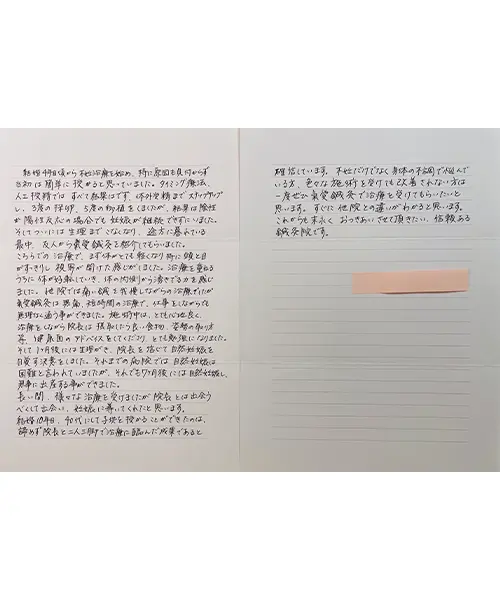 結婚4年目頃から不妊治療を始め、特に原因も見付からず
当初は簡単に授かると思っていました。タイミング療法、
人工授精では すべて結果はでず、体外受精まで ステップアップ
し、3度の採卵、5度の移植をしましたが、結果は陰性
か陽性反応の場合でも 妊娠が継続できずにいました。
そしてついには生理までこなくなり、途方に暮れている
最中、友人から 鍼灸を紹介してもらいました。
こちらでの治療で、まず体がとても軽くなり特に頭と目
がすっきりし 視界が開けた感じがしました。治療を重ねる
うちに体が好転していき、体の内側から湧きでる力を感じ
ました。他院では痛い鍼を我慢しながらの治療でしたが
鍼灸は無痛、短時間の治療で、仕事をしながらでも
無理なく通う事ができました。施術中は、とても心地良く、
治療をしながら院長は 摂取したら良い食物、姿勢の取り方
等 健康面のアドバイスをしてくださり、とても勉強になりました。
そして1ヶ月後には生理がき、院長を信じて自然妊娠を
目指す決意をしました。それまでの病院では 自然妊娠は
困難と言われていましたが、それでも7ヶ月後には自然妊娠し、
無事に出産する事ができました。
長い間、様々な治療を受けましたが 院長とは出会う
べくして出会い、妊娠に導いてくれたと思います。
結婚10年目、40代にして子供を授かることができたのは、
諦めず院長と二人三脚で治療に臨んだ成果であると
確信しています。不妊だけでなく身体の不調で悩んで
いる方、色々な施術を受けても改善されない方は
一度ぜひ 鍼灸で治療を受けてもらいたいと
思います。すぐに他院との違いがわかると思います。
これからも末永く おつきあいさせて頂きたい、信頼ある
鍼灸院です。